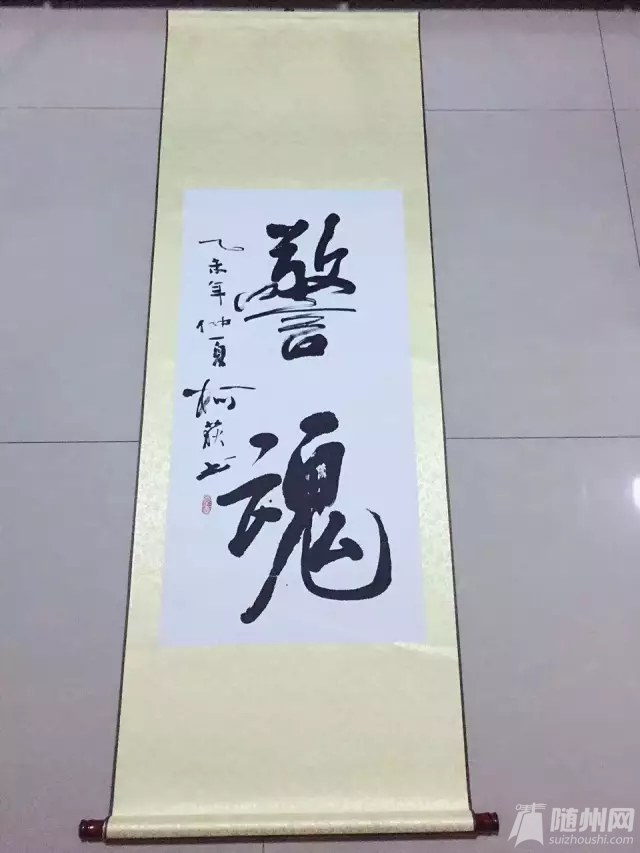 警魂
乙未年仲夏柯荻书
随州网
suizhoushi.com